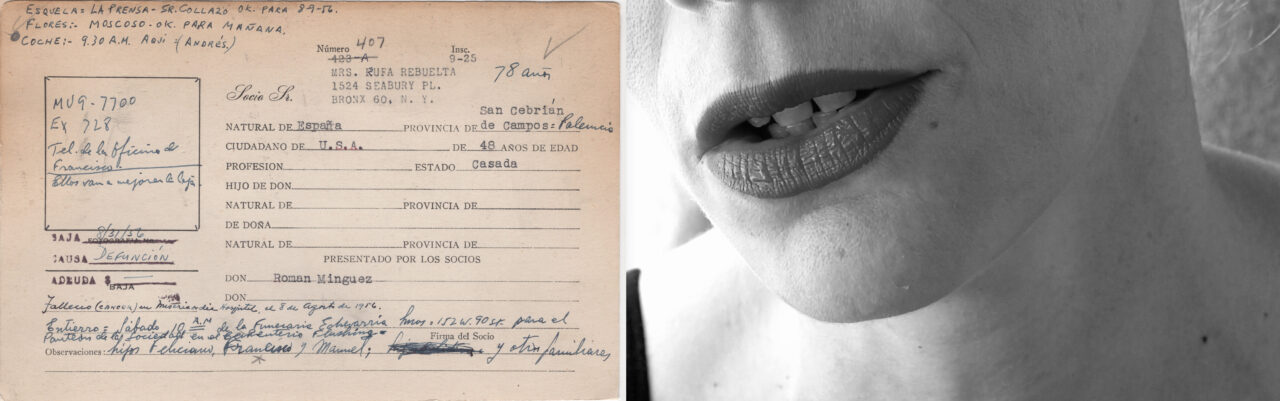 ESQUELA = LA PRENSA - SR. COLLAZO OK. PARA 8-9-56.
FLORES:- MOSCOSO - OK. PARA MAÑANA.
COCHE:- 9.30 A.M. AQUI - (ANDRÉS.)
Número 407 Insc.
423-A 9-25
MRS. RUFA REBUELTA 78 años
1524 SEABURY PL.
Socio Sr. BRONX 60, N. Y.
MU9-7700
Ex 728
Tel. de la oficina de
Francisco.
Ellos van a mejorar la caja
San Cebrián
NATURAL DE España PROVINCIA DE de Campos = Palencia
CIUDADANO DE U.S.A. DE 48 AÑOS DE EDAD
PROFESION ESTADO Casada
HIJO DE DON
NATURAL DE PROVINCIA DE
DE DOÑA
BAJA 8/31/56
NATURAL DE PROVINCIA DE
CAUSA DEFUNCIÓN
PRESENTADO POR LOS SOCIOS
ADEUDA $
BAJA
DON Roman Minguez
DON
Fallecio (CANCER) en Hospital, el 8 de Agosto de 1956.
Entierro = Sábado, 10 A.M. de la Funeraria Echevarría Hnos. 152 W. 90 St. para el
Panteon de la Sociedad en el Cementerio Flushing =
Firma del Socio
Observaciones: hijos Feliciano, Francisco y Manuel; y otros familiares